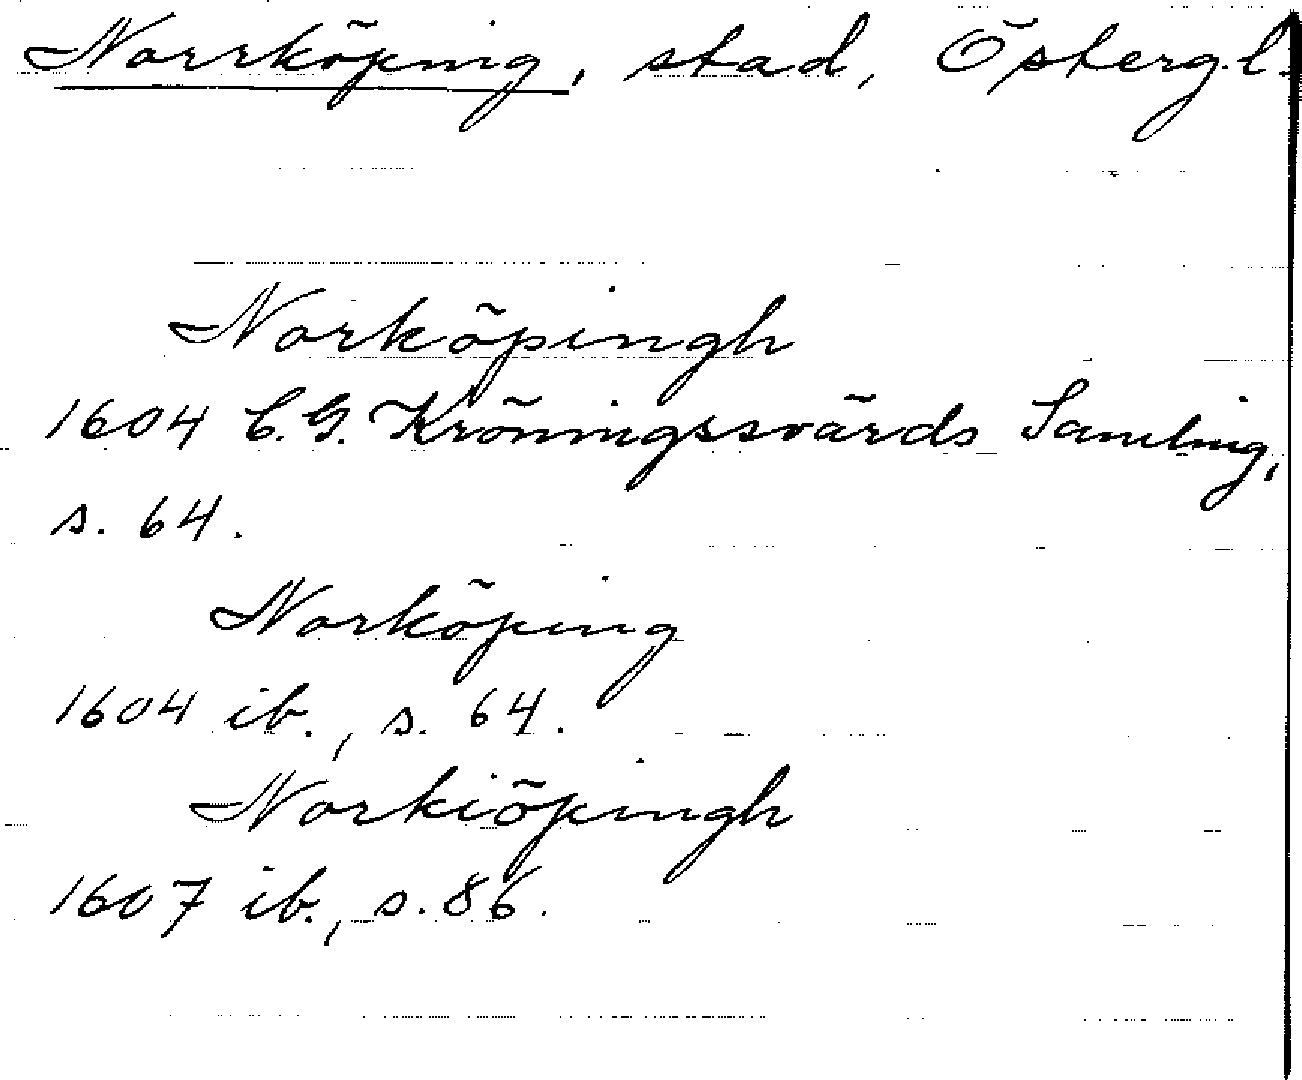 Norrköping, stad, Östergl.
Norköpingh
1604 C.G. Kröningssvärds Samling,
s. 64.
Norköping
1604 ib., s. 64.
Norkiöpingh
1607 ib., s. 86.